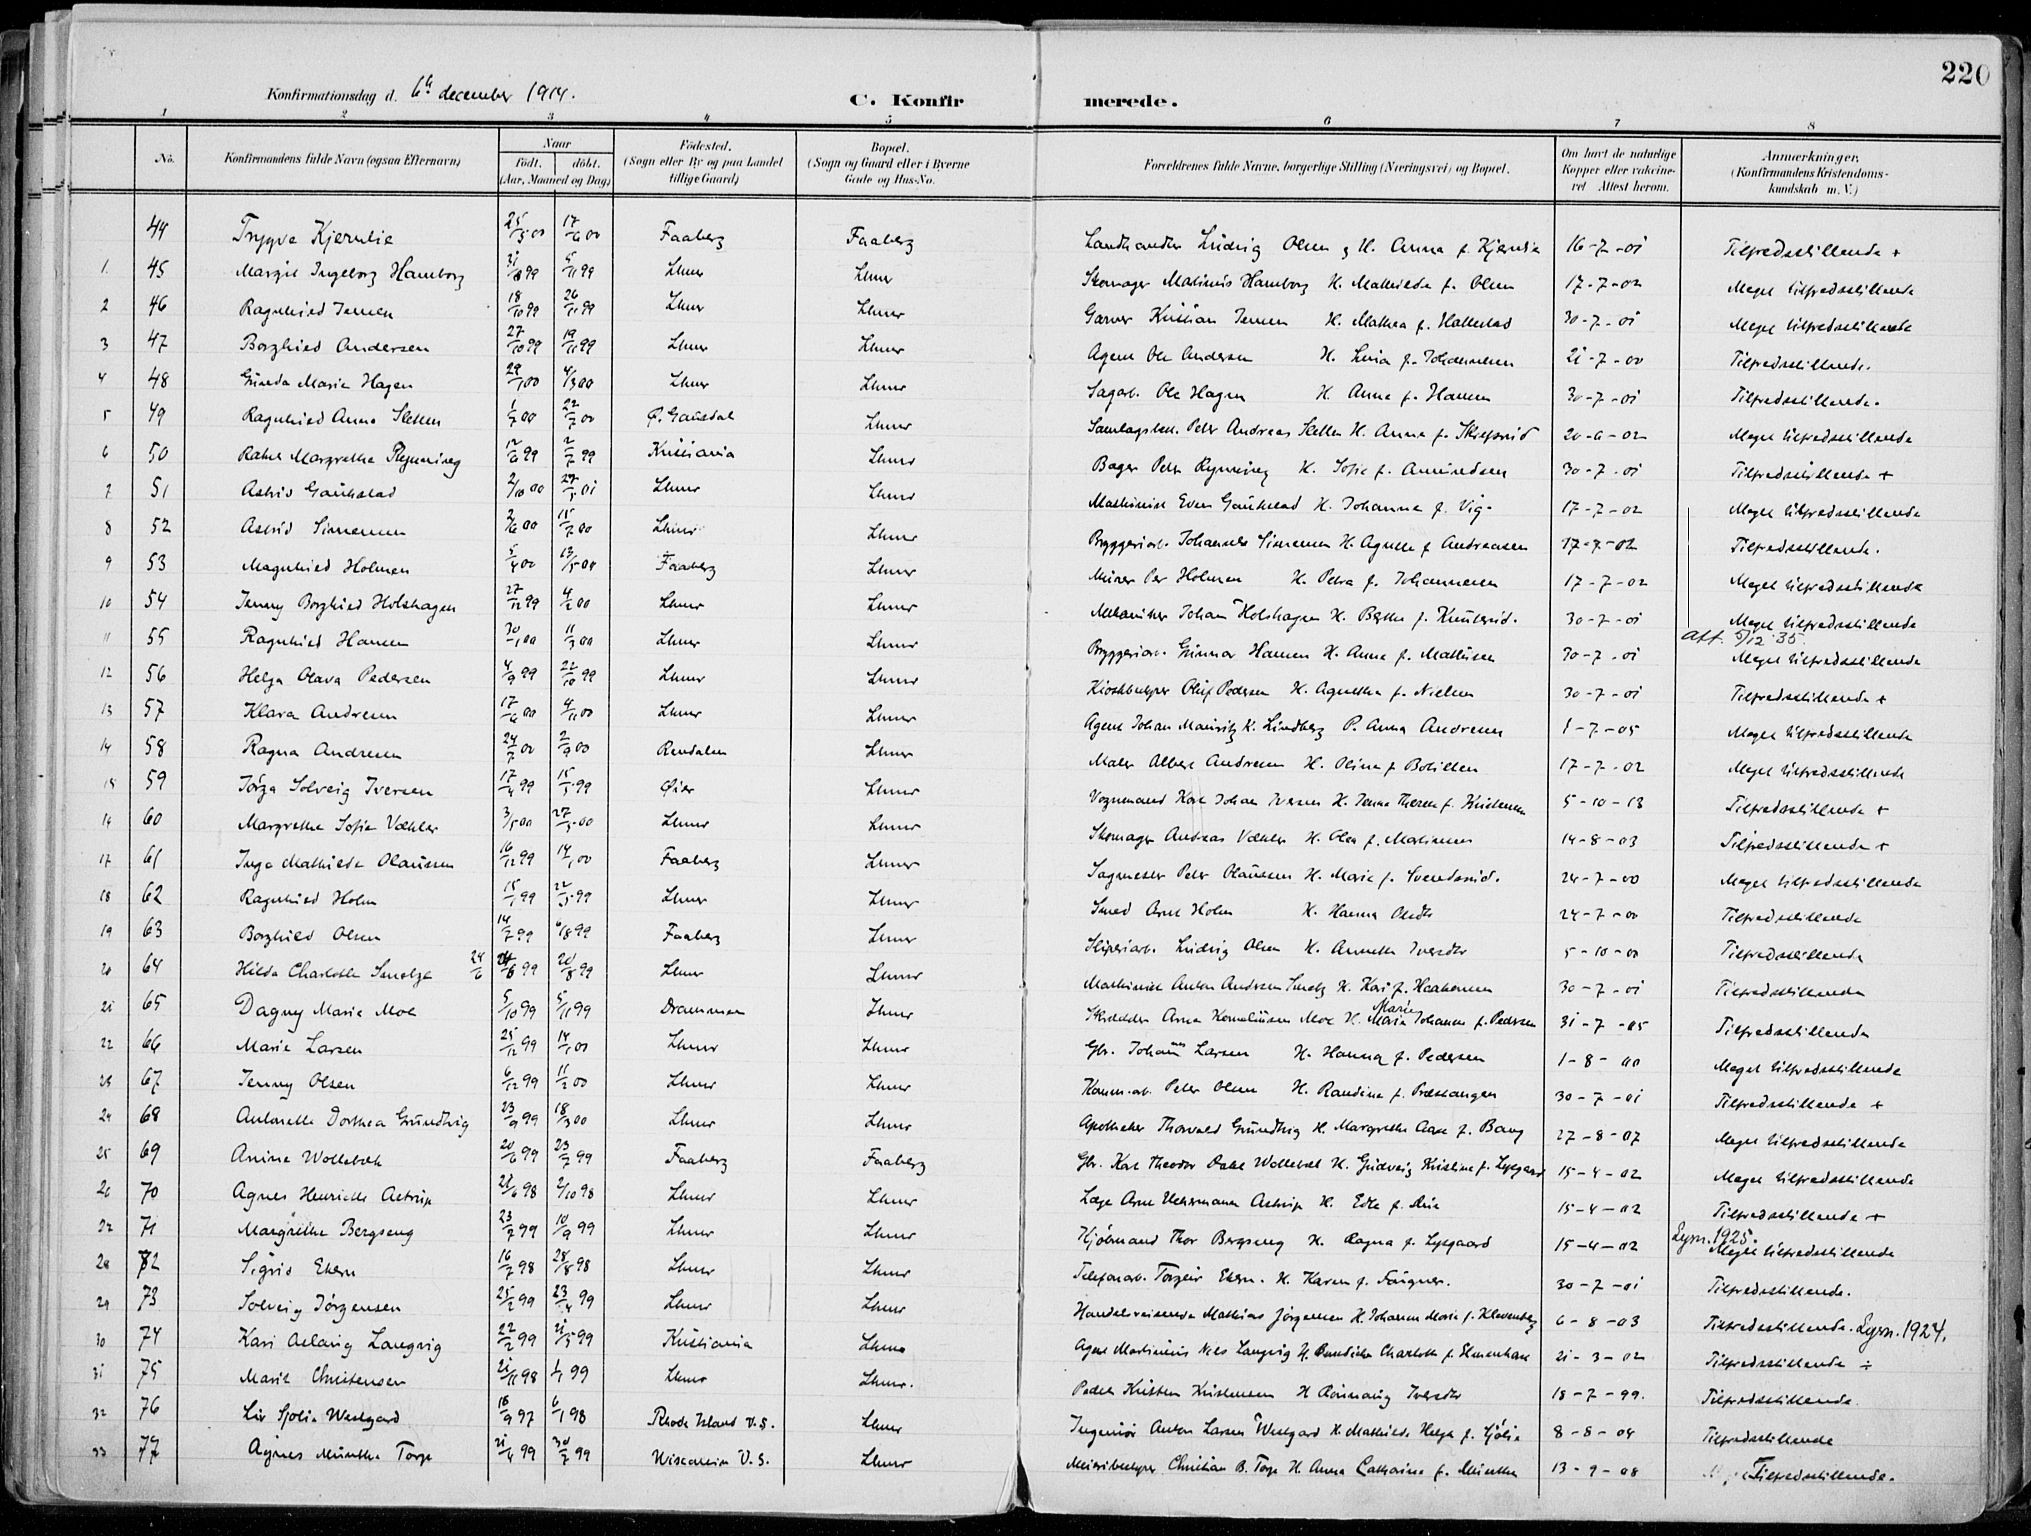 220
Konfirmationsdag d. 6te december 1914. C. Konfirmerede.
1 2 3 4 5 6 7 8
No. Konfirmandens fulde Navn (ogsaa Efternavn) Naar födt. döbt. (Aar, Maaned og Dag) Födested. (Sogn eller By og paa Landet tillige Gaard) Bopæl. (Sogn og Gaard eller i Byerne Gade og Hus-No. Forældrenes fulde Navne, borgerlige Stilling (Næringsvei) og Bopæl. Om havt de naturlige Kopper eller vakcineret Attest herom. Anmærkninger. (Konfirmandens Kristendomskundskab m. V.)
44 Trygve Kjernlie 25/5 00 17/6 00 Faaberg Faaberg Landhandler Ludvig Olsen og H. Anna f. Kjernlie 16-7-01 Tilfredsstillende +
1. 45 Margit Ingeborg Hamborg 31/8 99 5/11 99 Lhmr Lhmr Skomager Matinus Hamborg H. Mathilde f. Olsen 17-7-02 Meget tilfredsstillende
2 46 Ragnhild Jensen 18/10 99 26/11 99 Lhmr Lhmr Garver Kristian Jensen H. Mathea f. Hallestad 30-7-01 Meget tilfredsstillende
3 47 Borghild Andersen 27/10 99 19/11 99 Lhmr Lhmr Agent Ole Andersen H. Lina f. Johannesen 21-7-00 Tilfredsstillende.
4 48 Gunda Marie Hagen 29/1 00 4/3 00 Lhmr Lhmr Sagarb. Ole Hagen H. Anne f. Hansen 30-7-01 Tilfredsstillende.
5 49 Ragnhild Anna Sletten 1/7 00 22/7 00 Ø. Gausdal Lhmr Samlagsbest. Peter Andreas Sletten H. Anna f. 20-6-02 Meget tilfredsstillende
6 50 Rakel Margrethe Rynning 12/6 99 2/7 99 Kristiania Lhmr Bager Peter Rynning H. Sofie f. Amundsen 30-7-01 Tilfredsstillende +
7 51 Astrid Gaukstad 2/10 00 27/5 01 Lhmr Lhmr Maskinist Even Gaukstad H. Johanne f. Vig. 17-7-02 Meget tilfredsstillende
8 52 Astrid Simensen 2/6 00 15/7 00 Lhmr Lhmr Bryggeriarb. Johannes Simensen H. Agnethe f. Andreasen 17-7-02 Tilfredsstillende.
9 53 Magnhild Holmen 5/4 00 13/5 00 Faaberg Lhmr Murer Per Holmen H. Petra f. Johannesen 17-7-02 Meget tilfredsstillende
10 54 Jenny Borghild Holshagen 27/12 99 4/2 00 Lhmr Lhmr Mekaniker Johan Holshagen H. Berthe f. Knutsrud. 30-7-01 Meget tilfredsstillende
11 55 Ragnhild Hansen 30/1 00 11/3 00 Lhmr Lhmr Bryggeriarb. Gunnar Hansen H. Anna f. Mathisen 30-7-01 att. 5/12 35 Meget tilfredsstillende
12 56 Helga Olava Pedersen 4/9 99 22/10 99 Lhmr Lhmr Kioskbestyrer Oluf Pedersen H. Agnethe f. Nielsen 30-7-01 Tilfredsstillende +
13 57 Klara Andresen 17/6 00 4/11 00 Lhmr Lhmr Agent Johan Mauritz K. Lindberg P. Anna Andresen 1-7-05 Meget tilfredsstillende
14 58 Ragna Andresen 24/7 00 2/9 00 Rendalen Lhmr Maler Albert Andresen H. Olina f. 17-7-02 Meget tilfredsstillende
15 59 Jörga Solveig Iversen 17/4 99 15/5 99 Öier Lhmr Vognmand Karl Johan Iversen H. Jenna Therese f. Kristensen 5-10-13 Tilfredsstillende +
14 60 Margrethe Sofie Væhler 3/5 00 27/5 00 Lhmr Lhmr Skomager Andreas Væhler H. Olea f. Martinsen 14-8-03 Tilfredsstillende +
17 61 Inga Mathilde Olaussen 16/12 99 14/1 00 Faaberg Lhmr Sagmester Peter Olaussen H. Marie f. Svendsrud. 24-7-00 Meget tilfredsstillende
18 62 Ragnhild Holm 15/1 99 22/5 99 Lhmr Lhmr Smed Arne Holm H. Hanna Olsdtr 24-7-00 Tilfredsstillende
19 63 Borghild Olsen 14/7 99 6/8 99 Faaberg Lhmr Ludvig Olsen H. Annette Iversdtr 5-10-00 Tilfredsstillende
20 64 Hilda Charlotte Smelge 24/6 24/6 99 20/8 99 Lhmr Lhmr Maskinist Anton Andersen H. Kari f. Haakensen 30-7-01 Tilfredsstillende
21 65 Dagny Marie Moe 5/10 99 5/11 99 Drammen Lhmr Skrædder Arne Korneliusen Moe H. Marie Maria Johanne f. Pedersen 31-7-05 Tilfredsstillende
22 66 Marie Larsen 25/12 99 14/1 00 Lhmr Lhmr Gbr. Johannes Larsen H. Hanna f. Pedersen 1-8-00 Meget tilfredsstillende
23 67 Jenny Olsen 6/12 99 11/2 00 Lhmr Lhmr Komm.arb. Peter Olsen H. Randine f. Præstangen 30-7-01 Tilfredsstillende +
24 68 Antonette Dorthea Grundtvig 23/9 99 18/3 00 Lhmr Lhmr Apotheker Thorvald Grundtvig H. Margrethe Aase f. Bang 27-8-07 Meget tilfredsstillende
25 69 Anine Wollebæk 20/6 99 23/7 99 Faaberg Faaberg Gbr. Karl Theodor Dahl Wollebæk H. Gudveig Kristine f. Lysgaard 15-4-02 Meget tilfredsstillende
26 70 Agnes Henriette Astrup 21/6 98 2/10 98 Lhmr Lhmr Læge Arne Uchermann Astrup H. Edle f. 15-4-02 Tilfredsstillende +
27 71 Margrethe Bergseng 23/7 99 10/9 99 Lhmr Lhmr Hjólmand Thor Bergseng H. Ragna f. Lysgaard 15-4-02 Lysn. 1925. Meget tilfredsstillende
28 72 Sigrid Ekern 16/7 98 28/8 98 Lhmr Lhmr Telefonarb. Torgeir Ekern. H. Karen f. Fougner. 30-7-01 Tilfredsstillende.
29 73 Solveig Jörgensen 25/2 99 23/4 99 Lhmr Lhmr Handelsreisende Mathias Jörgensen H. Johanne Marie f. Klevenberg 6-8-03 Tilfredsstillende. Lysn. 1924.
30 74 Kari Aslaug Langvig 22/2 99 21/5 99 Kristiania Lhmr Agent Martinius Nils Langvig H. Bendikte Charlotte f. 21-3-02 Tilfredsstillende ÷
31 75 Marit Christensen 21/11 98 1/1 99 Lhmr Lhmr. Peder Kristen Kristensen H. Rönnaug Iversdtr 18-7-99. Tilfredsstillende.
32 76 Liv Sjølie Westgard 18/9 97 6/1 98 Rhode Island U.S. Lhmr Ingeniör Anton Larsen Westgard H. Mathilde Helga f. Sjölie 8-8-04 Tilfredsstillende
33 77 Agnes Münthe Torp 21/4 99 30/7 99 Wisconsin U.S. Lhmr Meieribestyrer Christian B. Torp H. Anna Catharine f. Münthe 13-9-08 Tilfredsstillende.